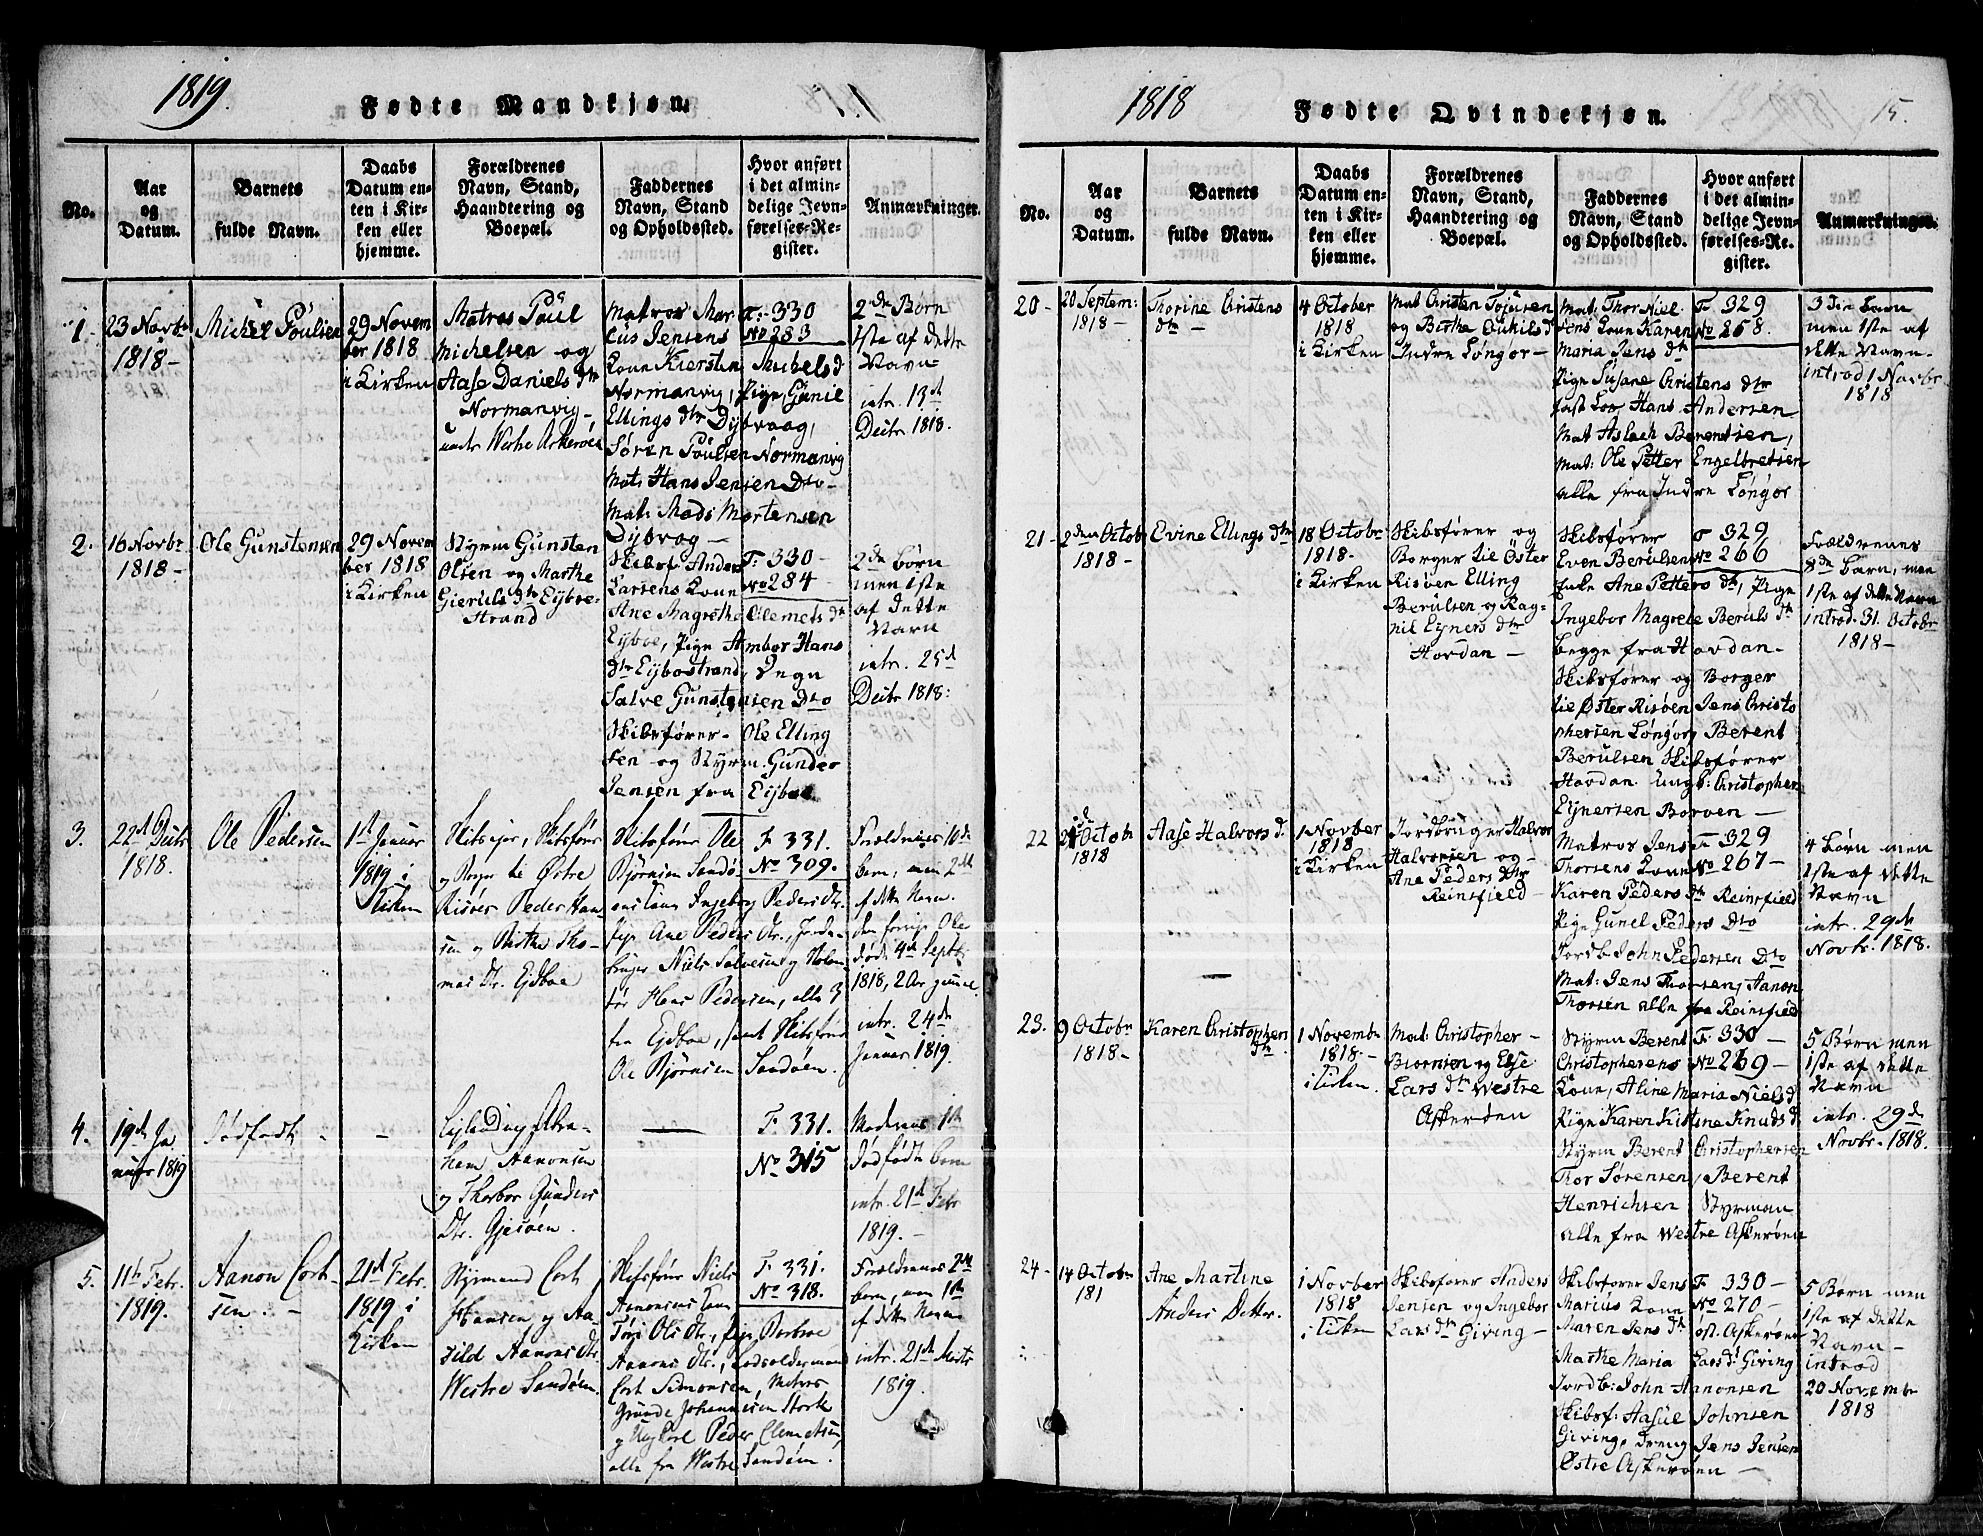 1819.
Fødte Mandkjøn.
No.
Aar
og
Datum.
Barnets
fulde Navn.
Daabs
Datum en-
ten i Kir-
ken eller
hjemme.
Forældrenes
Navn, Stand,
Haandtering og
Boepæl.
Faddernes
Navn, Stand
og Opholdssted.
Hvor anført
i det almin-
delige Jevn-
førelses-Re-
gister.
Anmærkninger.
1.
23 Novbr
1818-
Michel Poulsen
29 Novem
ber 1818
i Kirken
Matros Poul
Michelsen og
Aase Daniels dtr
Normanvig-
Matros Mar
cus Jensens
Kone Kiersten Michels d
Normanvig, Pige Gunil
Ellings dtr Dybvaag,
Søren Poulsen Normanvig
Mat: Hans Jensen Dto-
Mat: Mads Mortensen
Dybvog-
F: 330
No 283
2de Børn
1ste af dette
Navn
intr. 13d
Decbr 1818.
2.
16 Novbr
1818-
Ole Gunstensen
29 Novem
ber 1818
i Kirken
Styrm Gunsten
Olsen og Marthe
Gieruls dtr Eybve-
Strand
Skibsf Anders
Larsens Kone
Ane Magretha Clemets dtr
Eyboe, Pige Ambor Hans
dtr Eybostrand, Degn
Salve Gunstensen Dto
Skibsfører- Ole Elling
sen og Styrm. Gunder
Jensen fra Eyboe
F: 330-
No 284-
2de børn
men 1ste
af dette
Navn
intr. 25d
Decbr 1818:
3.
22d Decbr
1818.
Ole Pedersen
1st Januar
1819 i
Kirken
Skibsejer, Skibsfører
og Borger til Østre
Risøer Peder Han-
sen og Birthe Tho-
mas Dtr. Eydboe
Skibsfører Ole
Bjørnsen Sandø-
ens Kone Ingeborg Peders Dtr.
Pige Ane Peders Dtr., Jord-
bruger Niels Salvesen og
Hans Pedersen, alle 3
fra Eydboe, samt Skibsfører
Ole Bjørnsen Sandøen.
F 331.
No 309.
Forældrenes 10de
barn, men 2det
af dette Navn.
den forrige Ole
døde 4de Septb.
1818, 2 Aar gammel.
intr. 24de
Januar 1819.
4.
19de Ja
nuar 1819
Dødfødt -
-
Abra-
ham Aanonsen
og Thorbor Gunders
Dtr. Gjesøen.
F. 331.
No 315
Moderens 1ste
Dødfødt barn
intr. 21d Febr
1819.-
5.
11te Febr.
1819.
Aanon Cort-
sen. -
21d Febr.
1819 i
Kirken
Styrmand Cort
Hansen og Aa-
sild Aanons Dtr.
Westre Sandøen.
Skibsfører Niels
Aanonsens Kone
Tøri Ols Dtr., Pige Barbroe
Aanons Dtr., Lodsolderman
Cort Simonsen, Matros
Gunde Johannesen Stork
og Ungkarl Peder Clemetsen,
alle fra Westre Sandøen.
F. 331.
No 318.
Forældrenes 2det
barn, men 1ste
af dette Navn
intr. 21de Marts
1819.
1818
Fødte Qvindekjøn.
15.
No.
Aar
og
Datum.
Barnets
fulde Navn.
Daabs
Datum en-
ten i Kir-
ken eller
hjemme.
Forældrenes
Navn, Stand,
Haandtering og
Boepæl.
Faddernes
Navn, Stand
og Opholdssted.
Hvor anført
i det almin-
delige Jevn-
førelses-Re-
gister.
Anmærkninger.
20-
20 Septem:
1818-
Thorine Cristens
dtr-
4 October
1818
i Kirken
Mat Christen Tojusen
og Birthe Oukils d
Indre Longor-
Mat: Thor Niel
sens Kone Karen
Maria Jens dtr
Pige Susane Christens dtr
Hans Andersen
Mat Aslach Berentsen,
Mat: Ole Petter Engelbretsen
alle fra Indre Longor
F 329
No 258.
3die barn
men 1ste af
dette Navn-
introd 1 Novbr
1818
21-
2den Octob
1818-
Evine Ellings dtr
18 Octobr
1818-
i Kirken
Skibsfører og
Borger til Öster
Risöer Elling
Berulsen og Rag-
nil Eyners dtr
Hovdan-
Skibsfører
Even Berulsen
Enke Ane Petters dtr, Pige
Ingebor Magrete Beruls dtr
begge fra Hovdan-
Skibsfører og Borger
til Øster Risøen Jens Christo
phersen Longor, Berent
Berulsen Skibsfører
Havdan ungk: Christopher
Eynersen Borven-
F 329
No 266
Forældrenes
8de barn, men
1ste af dette Navn
introd. 31. Octobr
1818-
22
Octob
1818
Aase Halvors d.
1 Novber
1818
i Kirken
Jordbruger Halvor
Halvorsen og-
Ane Peders dtr
Reinsfield-
Matros Jens
Thorsens Kone
Karen Peders dtr Reinsfield
Pige Gunel Peders Dto
Jordb John Pedersen Dto
Mat: Jens Thorsen, Aanon
Thorsen alle fra Reinsfield
F 329
No 267-
4 børn men
1ste af dette
Navn
intr. 29de
Novbr. 1818.
23.
9 Octobr
1818-
Karen Christophers
dtr.
1 Novembr
1818-
i Kirken.
Mat: Christopher-
Biornsen og Else
Lars dtr Westre
Askerøen
Styrm Berent
Christophersens
Kone, Aline Maria Niels d
Pige Karen Kistine Knuds d
Styrm Berent Christophersen
Tor Sørensen, Berent
Henrichsen Styrman
alle fra Westre Askerøen
F. 330-
No 269-
5 Børn men
1ste af dette
Navn
intr. 29de
Novbr. 1818.
24-
14 Octobr
181
Ane Martine
Anders Datter.
1 Novber
1818
i Kirken
Skibsfører Anders
Jensen og Ingebor
Lars dtr Giving-
Skibsfører Jens
Marius Kone
Maren Jens dtr Øst. Askerøen
Marthe Maria Lars d Giving
Jordb: John Aanonsen
Skibsf: Aasul Johnsen
Giving, Dreng Jens Jensen
Østre Askerøen-
F 330-
No 270-
5 Børn men
1ste af dette
Navn-
introd
20 Novembr
1818